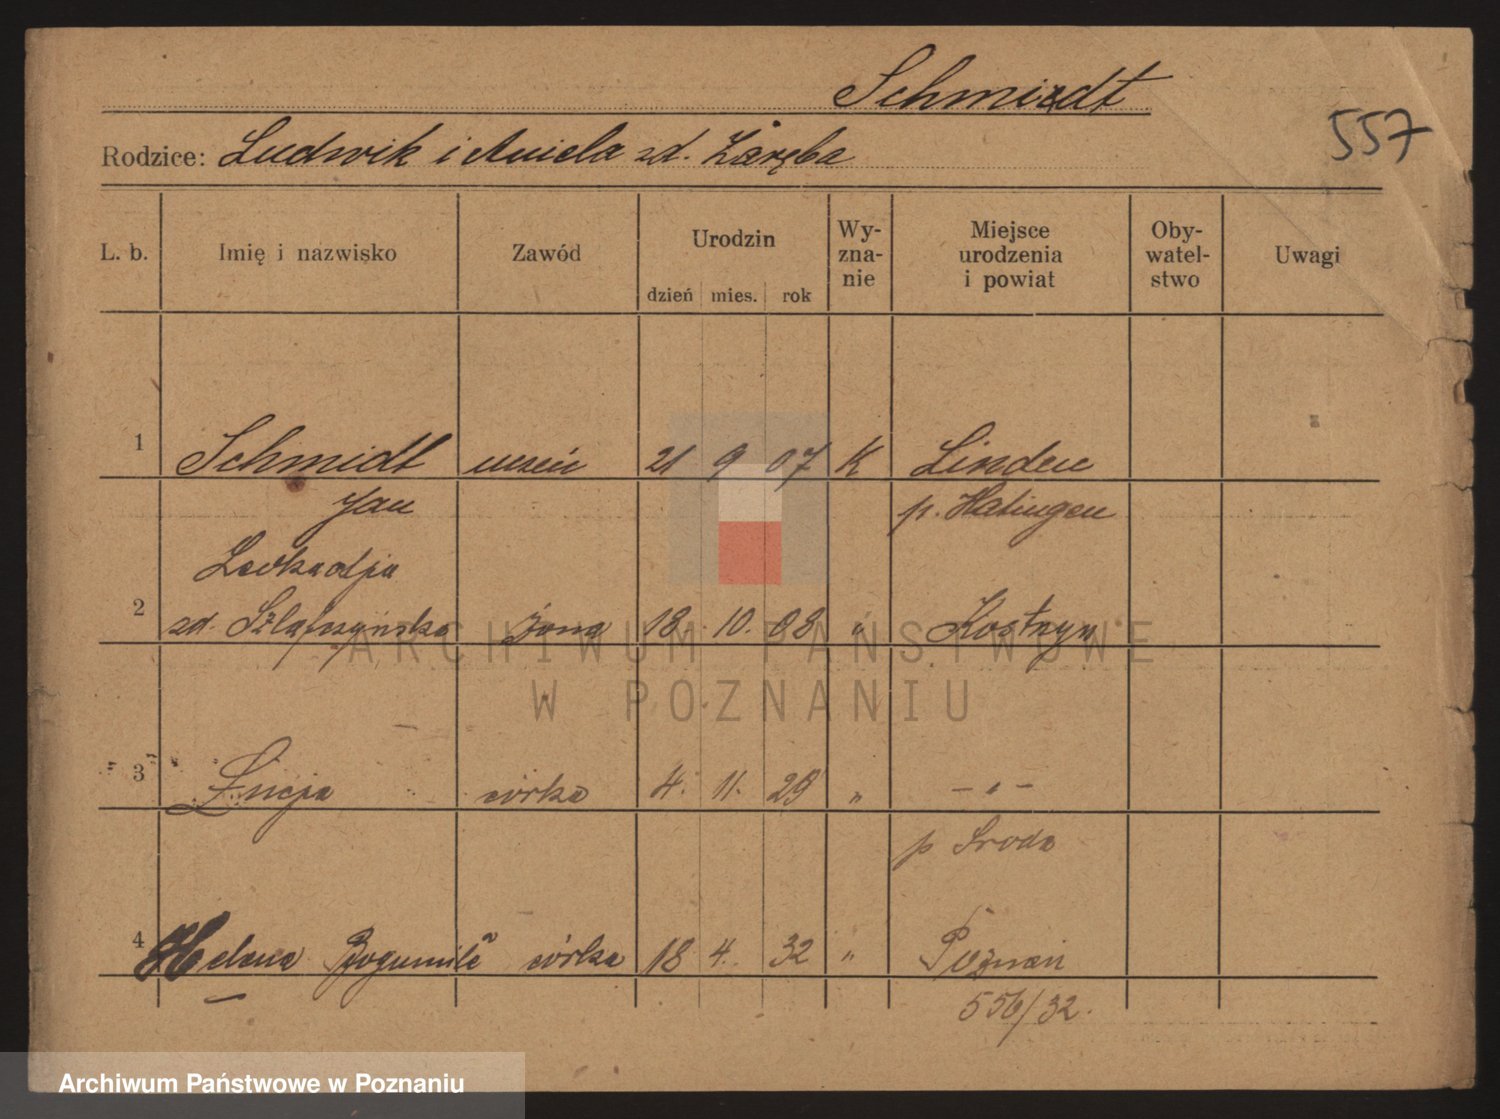 Schmidt
557
Rodzice: Ludwik i Aniela zd. Zaręba
L. b.
Imię i nazwisko
Zawód
Urodzin
dzień mies. rok
Wy-
zna-
nie
Miejsce
urodzenia
i powiat
Oby-
watel-
stwo
Uwagi
1 Schmidt uczeń 21 9 07 K Linden
Jan p. Hatingen
Leokadja
2 zd. żona 18 10. 08 " Kostrzyn
ARCHIWUM PAŃSTWOWE
W POZNANIU
3 Łucja córka 4. 11. 29 " — " —
p Sroda
4 Helena Bogumiła córka 18 4. 32 " Poznań
556/32.
Archiwum Państwowe w Poznaniu